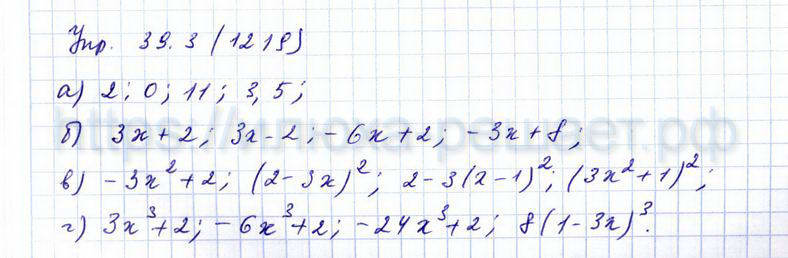 Упр. 39.3 (1219)
а) 2; 0; 11; 3,5;
б) 3x+2; 3x-2; -6x+2; -3x+8;
в) -3x²+2; (2-3x)²; 2-3(x-1)²; (3x²+1)²;
г) 3x³+2; -6x³+2; -24x³+2; 8(1-3x)³.